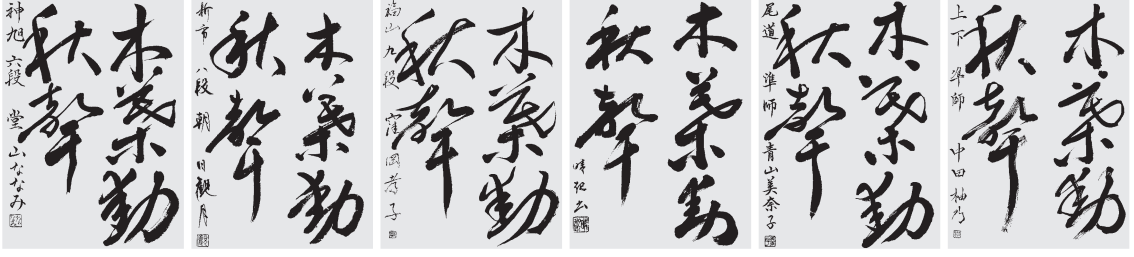 木葉動
秋聲
神旭 六段 堂山ななみ
木葉動
秋聲
新市 八段 朝日観月
木葉動
秋聲
福山 九段 窪岡 子
木葉動
秋聲
木葉動
秋聲
尾道 準師 青山美奈子
木葉動
秋聲
上下 準師 中田柚乃